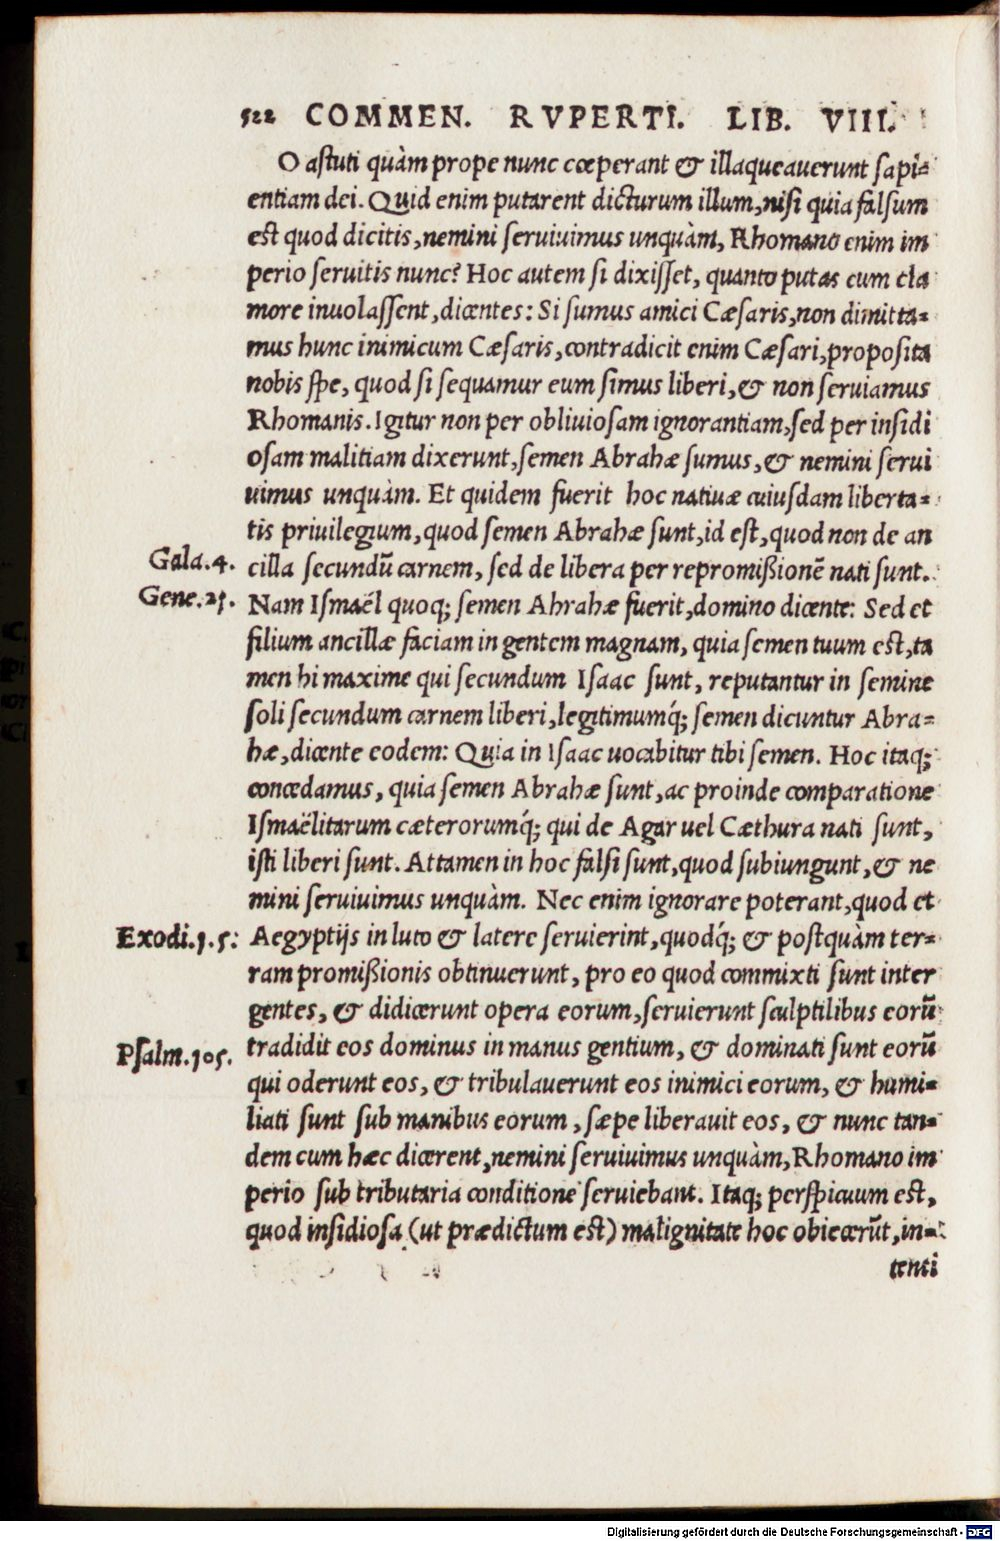 522 COMMEN. RVPERTI. LIB. VIII.
O astuti quàm prope nunc cœperant & illaqueauerunt sapi=
entiam dei. Quid enim putarent dicturum illum, nisi quia falsum
est quod dicitis, nemini seruiuimus unquàm, Rhomano enim im
perio seruitis nunc? Hoc autem si dixisset, quanto putas cum cla
more inuolassent, dicentes: Si sumus amici Cæsaris, non dimitta=
mus hunc inimicum Cæsaris, contradicit enim Cæsari, proposita
nobis spe, quod si sequamur eum simus liberi, & non seruiamus
Rhomanis. Igitur non per obliuiosam ignorantiam, sed per insidi
osam malitiam dixerunt, semen Abrahæ sumus, & nemini serui
uimus unquàm. Et quidem fuerit hoc natiuæ cuiusdam liberta=
tis priuilegium, quod semen Abrahæ sunt, id est, quod non de an
Gala.4. cilla secundū carnem, sed de libera per repromißionē nati sunt.
Gene.21. Nam Ismaël quoq; semen Abrahæ fuerit, domino dicente: Sed et
filium ancillæ faciam in gentem magnam, quia semen tuum est, ta
men hi maxime qui secundum Isaac sunt, reputantur in semine
soli secundum carnem liberi, legitimumq́; semen dicuntur Abra=
hæ, dicente eodem: Quia in Isaac uocabitur tibi semen. Hoc itaq;
concedamus, quia semen Abrahæ sunt, ac proinde comparatione
Ismaëlitarum cæterorumq́; qui de Agar uel Cæthura nati sunt,
isti liberi sunt. Attamen in hoc falsi sunt, quod subiungunt, & ne
mini seruiuimus unquàm. Nec enim ignorare poterant, quod et
Exodi.1.5: Aegyptijs in luto & latere seruierint, quodq́; & postquàm ter=
ram promißionis obtinuerunt, pro eo quod commixti sunt inter
gentes, & didicerunt opera eorum, seruierunt sculptilibus eorū
Psalm.105. tradidit eos dominus in manus gentium, & dominati sunt eorū
qui oderunt eos, & tribulauerunt eos inimici eorum, & humi=
liati sunt sub manibus eorum, sæpe liberauit eos, & nunc tan=
dem cum hæc dicerent, nemini seruiuimus unquàm, Rhomano im
perio sub tributaria conditione seruiebant. Itaq; perspicuum est,
quod insidiosa (ut prædictum est) malignitate hoc obiecerūt, in=
tenti
Digitalisierung gefördert durch die Deutsche Forschungsgemeinschaft - DFG